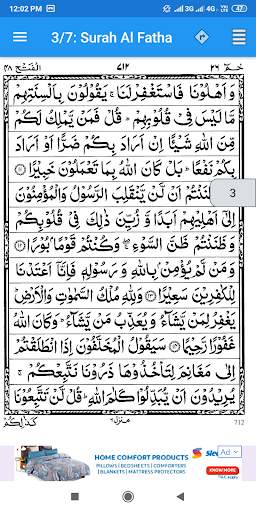 12:02 PM 3G 4G 47
3/7: Surah Al Fatha
الفتح ٤٨ ٧١٢ حٰمٓ ٢٦
وَاَهْلُوْنَا فَاسْتَغْفِرْ لَنَا ۚ يَقُوْلُوْنَ بِاَلْسِنَتِهِمْ
مَّا لَيْسَ فِيْ قُلُوْبِهِمْ ؕ قُلْ فَمَنْ يَّمْلِكُ لَكُمْ
مِّنَ اللّٰهِ شَيْـًٔا اِنْ اَرَادَ بِكُمْ ضَرًّا اَوْ اَرَادَ
بِكُمْ نَفْعًا ؕ بَلْ كَانَ اللّٰهُ بِمَا تَعْمَلُوْنَ خَبِيْرًا ۝۱۱
ظَنَنْتُمْ اَنْ لَّنْ يَّنْقَلِبَ الرَّسُوْلُ وَالْمُؤْمِنُوْنَ
3
اِلٰۤى اَهْلِيْهِمْ اَبَدًا وَّ زُيِّنَ ذٰلِكَ فِيْ قُلُوْبِكُمْ
وَظَنَنْتُمْ ظَنَّ السَّوْءِ ۖۚ وَكُنْتُمْ قَوْمًۢا بُوْرًا ۝۱۲
وَمَنْ لَّمْ يُؤْمِنْۢ بِاللّٰهِ وَرَسُوْلِهٖ فَاِنَّاۤ اَعْتَدْنَا
لِلْكٰفِرِيْنَ سَعِيْرًا ۝۱۳ وَلِلّٰهِ مُلْكُ السَّمٰوٰتِ وَالْاَرْضِ ؕ
يَغْفِرُ لِمَنْ يَّشَآءُ وَيُعَذِّبُ مَنْ يَّشَآءُ ؕ وَكَانَ اللّٰهُ
غَفُوْرًا رَّحِيْمًا ۝۱۴ سَيَقُوْلُ الْمُخَلَّفُوْنَ اِذَا انْطَلَقْتُمْ
اِلٰى مَغَانِمَ لِتَاْخُذُوْهَا ذَرُوْنَا نَتَّبِعْكُمْ ۚ
يُرِيْدُوْنَ اَنْ يُّبَدِّلُوْا كَلٰمَ اللّٰهِ ؕ قُلْ لَّنْ تَتَّبِعُوْنَا
كَذٰلِكُمْ منزل ٦ 712
HOME COMFORT PRODUCTS
PILLOWS | BEDSHEETS | COMFORTERS
| BLANKETS | MATTRESS PROTECTORS
Ad
KNOW MORE